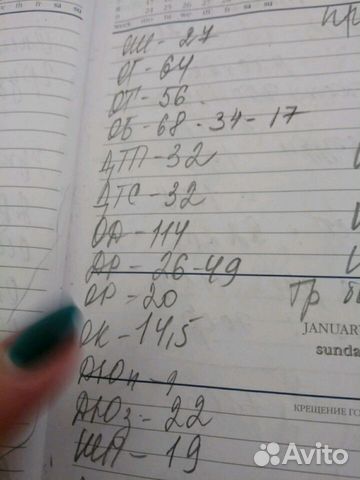 ОШ - 27
ОГ - 64
ОТ - 56
ОБ - 68 - 34 - 17
ДТП - 32
ДТС - 32
ОД - 114
ДР - 26 - 49
ОР - 20
ОК - 14,5
JANUAR
sunda
ДЮп - 9
ДЮз - 22
КРЕЩЕНИЕ ГО
ШП - 19
Avito